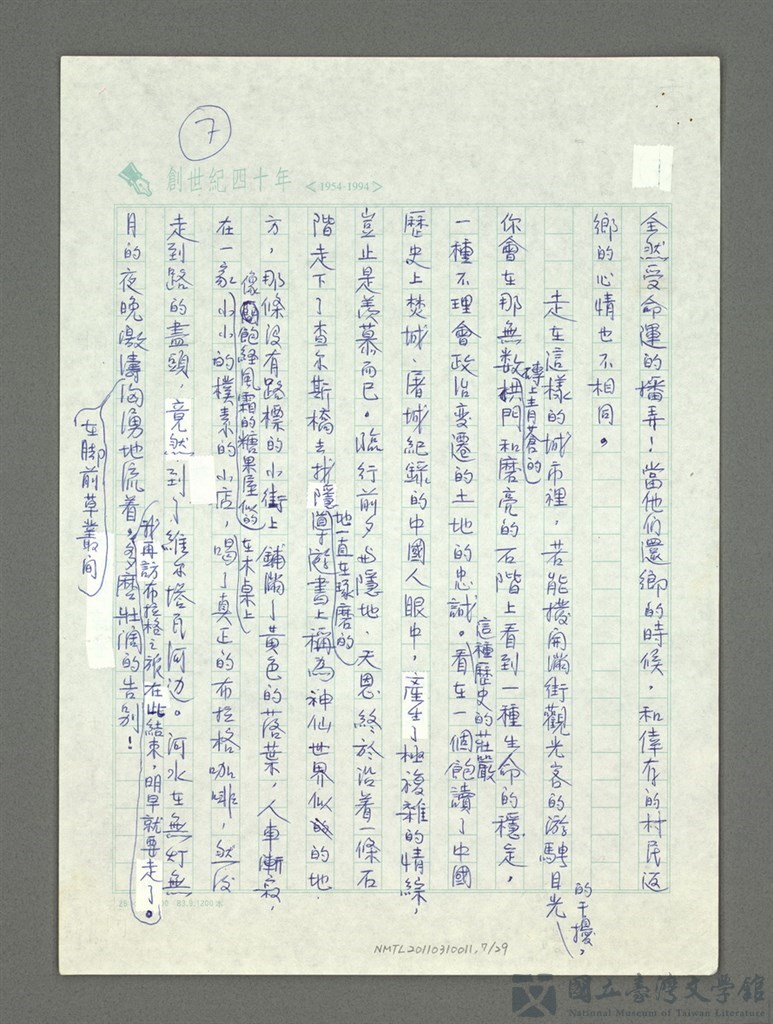 7
創世紀四十年 <1954-1994>
全然受命運的播弄！當他們還鄉的時候，和倖存的村民返
鄉的心情也不相同。
走在這樣的城市裡，若能撥開滿街觀光客的游騁目光的干擾，
你會在那無数拱門磚上青蒼的和磨亮的石階上看到一種生命的穩定，
一種不理會政治变遷的土地的忠誠。看在一個飽讀了中國
這種歷史的莊嚴
歷史上焚城、屠城紀錄的中國人眼中，產生了極複雜的情綜，
豈止是羨慕而已。臨行前夕与隱地、天恩終於沿着一條石
階走下了查尔斯橋去找隱地一直在琢磨的導遊書上稱為神仙世界似的地
方，那條没有路標的小街上鋪滿了黃色的落葉，人車漸寂，
在一家小小的樸素的小店，
像飽經風霜的糖果屋似的
在木桌上
喝了真正的布拉格咖啡，然后
走到路的盡頭，竟然到了維尔塔瓦河边。河水在無灯無
月的夜晚激濤洶湧地流着。多麼壯濶的告別！
在脚前草叢間
我再訪布拉格之旅在此結束，明早就要走了。
NMTL20110310011, 7/29
國立臺灣文學館
National Museum of Taiwan Literature